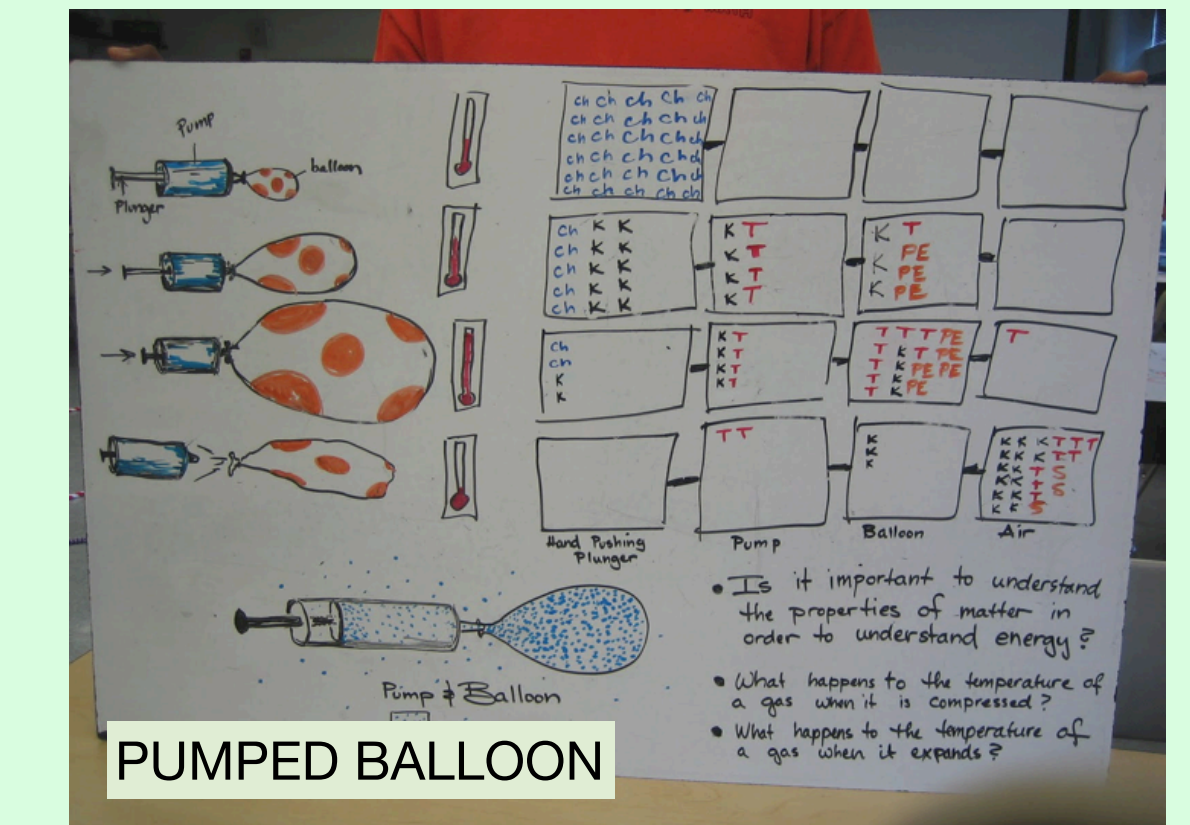 Pump
balloon
Plunger
ch ch ch ch ch
ch ch ch ch ch
ch ch ch ch ch
ch ch ch ch ch
ch ch ch ch ch
ch ch ch ch ch
ch K K
ch K K
ch K K
ch K K
ch K K
K T
K T
K T
K T
K T
K PE
PE
K PE
ch
ch
K
K
K T
K T
K T
K T
T T T PE
T K T PE
T K PE PE
T K PE
T
T T
K
K
K
K K K T T T
K K K T T
K K T S
K K T S
K K T
K K S
Hand Pushing
Plunger
Pump
Balloon
Air
• Is it important to understand
the properties of matter in
order to understand energy?
• What happens to the temperature of
a gas when it is compressed?
• What happens to the temperature of
a gas when it expands?
Pump & Balloon
PUMPED BALLOON